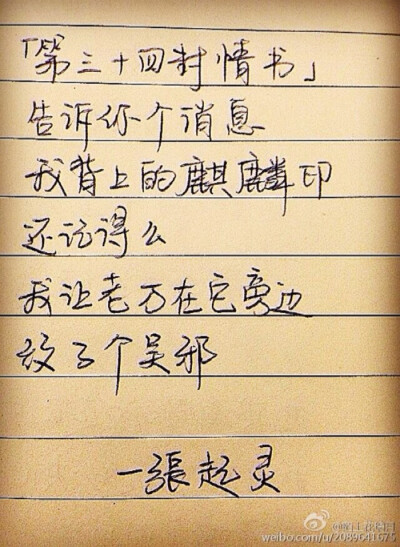 「第三十四封情书」
告诉你个消息
我背上的麒麟印
还记得么
我让老万在它旁边
纹了个吴邪
一張起灵
weibo.com/u/2089641675